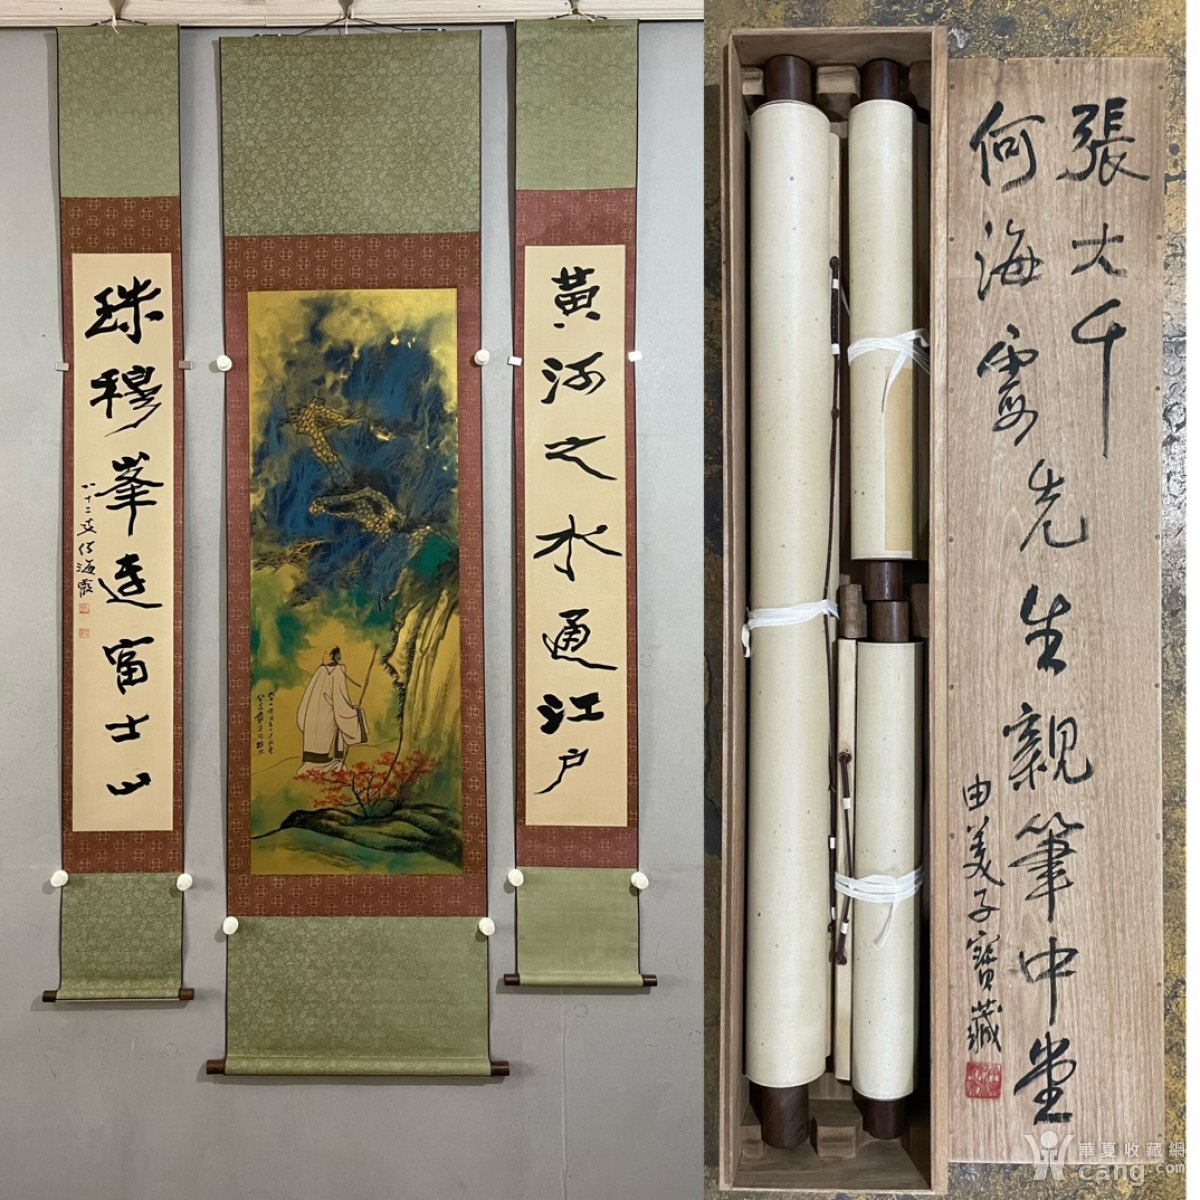 黃河之水通江户
珠穆峯連富士山
八十二叟何海霞
張大千
何海霞先生親筆中堂
由美子寶藏
華夏收藏網
cang.com